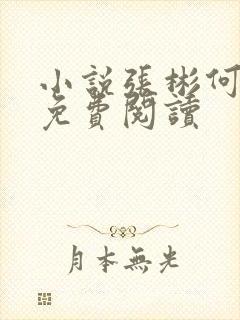 小説張彬何
免費閱讀
月本無光